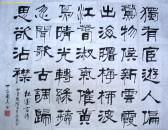 獨有宦遊人偏
驚物候新雲霞
出海曙梅柳渡
江春淑氣催黄
鳥晴光轉綠蘋
忽聞歌古調歸
思欲沾襟